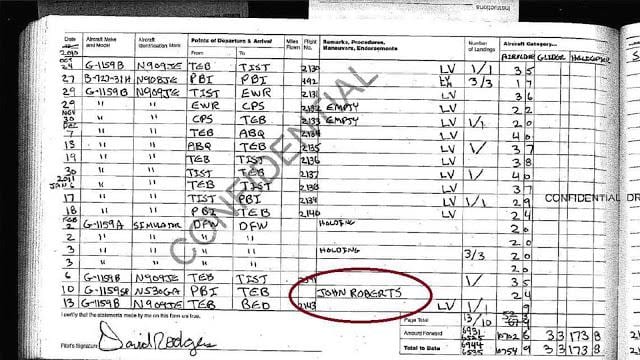 Instructions
Date 2010 Aircraft Make and Model Aircraft Identification Mark Points of Departure & Arrival From To Miles Flown Flight No. Remarks, Procedures, Maneuvers, Endorsements Number of Landings Aircraft Category... AIRPLANE GLIDER HELICOPTER
OCT 24 G-1159B N909JE TEB TIST 2130 LV 1/1 3 5
27 B-727-31H N908JE PBI PBI 492 3/3 1 7
29 G-1159B N909JE TIST EWR 2131 LV 3 6
29 " " EWR CPS 2132 EMPTY LV 2 2
NOV 30 " " CPS TEB 2133 EMPTY LV 1/1 2 0
DEC 7 " " TEB ABQ 2134 LV 4 0
13 " " ABQ TEB 2135 LV 1/ 3 7
19 " " TEB TIST 2136 LV 3 8
30 " " TIST TEB 2137 LV 1/ 4 0
2011 JAN 6 " " TEB TIST 2138 LV 3 7
17 " " TIST PBI 2139 LV 2 9
18 " " PBI TEB 2140 LV 2 4
FEB 2 G-1159A SIMULATOR DFW DFW HOLDING 2 0
2 " " " " 2 0
3 " " " " HOLDING 3/3 2 0
3 " " " " 2 0
6 G-1159B N909JE TEB TIST 1/ 3 5
10 N530GA PBI TEB JOHN ROBERTS 2 4
13 G-1159B N909JE TEB BED 2143 LV 1/1 9
I certify that the statements made by me on this form are true.
Page Total 13/10
Amount Forward 6 33 1738
Pilot's Signature David Rodgers Totals to Date 9 33 1738
CONFIDENTIAL
CONFIDENTIAL DR